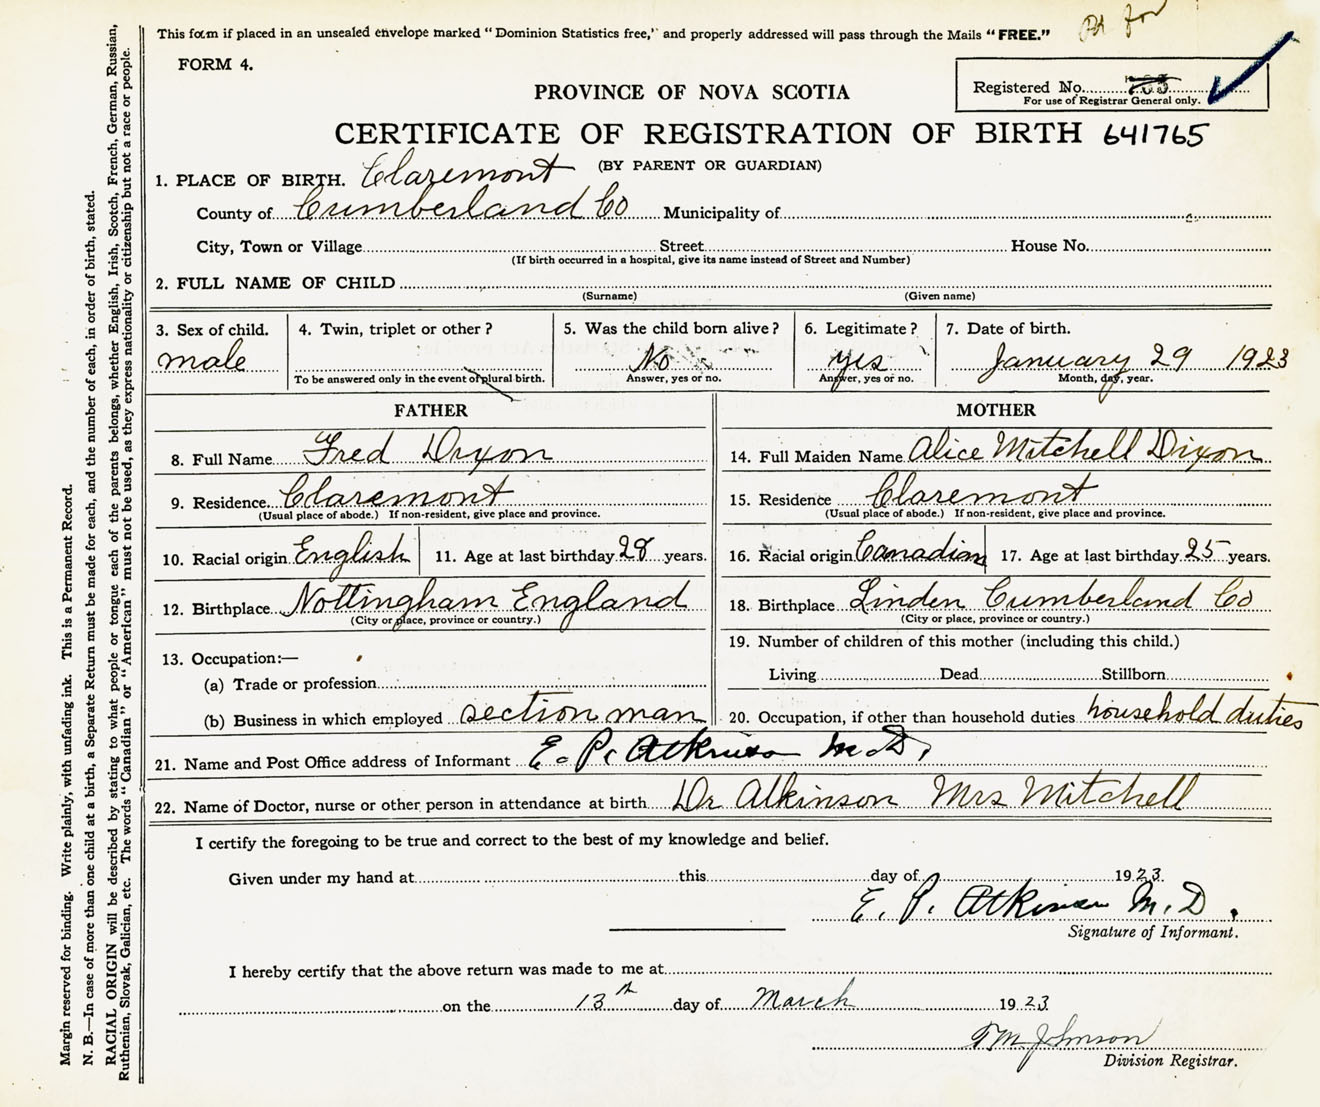 This form if placed in an unsealed envelope marked "Dominion Statistics free," and properly addressed will pass through the Mails "FREE."
FORM 4.
Registered No.
For use of Registrar General only.
PROVINCE OF NOVA SCOTIA
CERTIFICATE OF REGISTRATION OF BIRTH 641765
(BY PARENT OR GUARDIAN)
1. PLACE OF BIRTH. Claremont
County of Cumberland Co Municipality of
City, Town or Village Street House No.
(If birth occurred in a hospital, give its name instead of Street and Number)
2. FULL NAME OF CHILD
(Surname) (Given name)
3. Sex of child. 4. Twin, triplet or other? 5. Was the child born alive? 6. Legitimate? 7. Date of birth.
male No yes January 29 1923
To be answered only in the event of plural birth. Answer, yes or no. Answer, yes or no. Month, day, year.
FATHER MOTHER
8. Full Name Fred Dixon 14. Full Maiden Name Alice Mitchell Dixon
9. Residence Claremont 15. Residence Claremont
(Usual place of abode.) If non-resident, give place and province. (Usual place of abode.) If non-resident, give place and province.
10. Racial origin English 11. Age at last birthday 28 years. 16. Racial origin Canadian 17. Age at last birthday 25 years.
12. Birthplace Nottingham England 18. Birthplace Linden Cumberland Co
(City or place, province or country.) (City or place, province or country.)
13. Occupation:— 19. Number of children of this mother (including this child.)
(a) Trade or profession Living Dead Stillborn
(b) Business in which employed section man 20. Occupation, if other than household duties household duties
21. Name and Post Office address of Informant E. P. Atkinson M.D.
22. Name of Doctor, nurse or other person in attendance at birth Dr Atkinson Mrs Mitchell
I certify the foregoing to be true and correct to the best of my knowledge and belief.
Given under my hand at this day of 1923.
E. P. Atkinson M.D.
Signature of Informant.
I hereby certify that the above return was made to me at
on the 13th day of March 1923
Johnson
Division Registrar.
Margin reserved for binding. Write plainly, with unfading ink. This is a Permanent Record.
N. B.—In case of more than one child at a birth, a Separate Return must be made for each, and the number of each, in order of birth, stated.
RACIAL ORIGIN will be described by stating to what people or tongue each of the parents belongs, whether English, Irish, Scotch, French, German, Russian,
Ruthenian, Slovak, Galician, etc. The words "Canadian" or "American" must not be used, as they express nationality or citizenship but not a race or people.